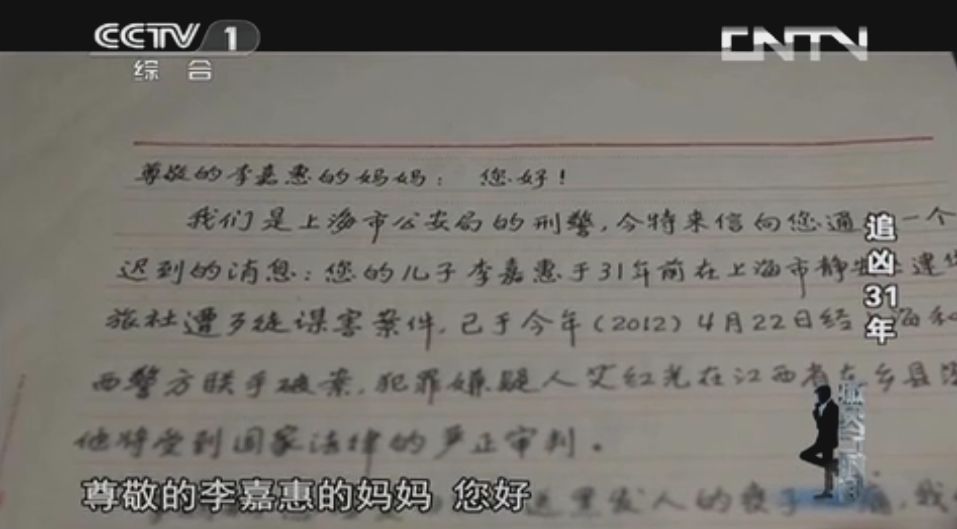 CCTV 1
综合
CNTV
尊敬的李嘉惠的妈妈： 您好！
我们是上海市公安局的刑警，今特来信向您通 一个
迟到的消息：您的儿子李嘉惠于31年前在上海市静
旅社遭歹徒谋害案件，已于今年（2012）4月22日经 海和
西警方联手破案，犯罪嫌疑人艾红光在江西省东乡县
他将受到国家法律的严正审判。
黑发人的丧子 痛，我
追凶31年
尊敬的李嘉惠的妈妈 您好